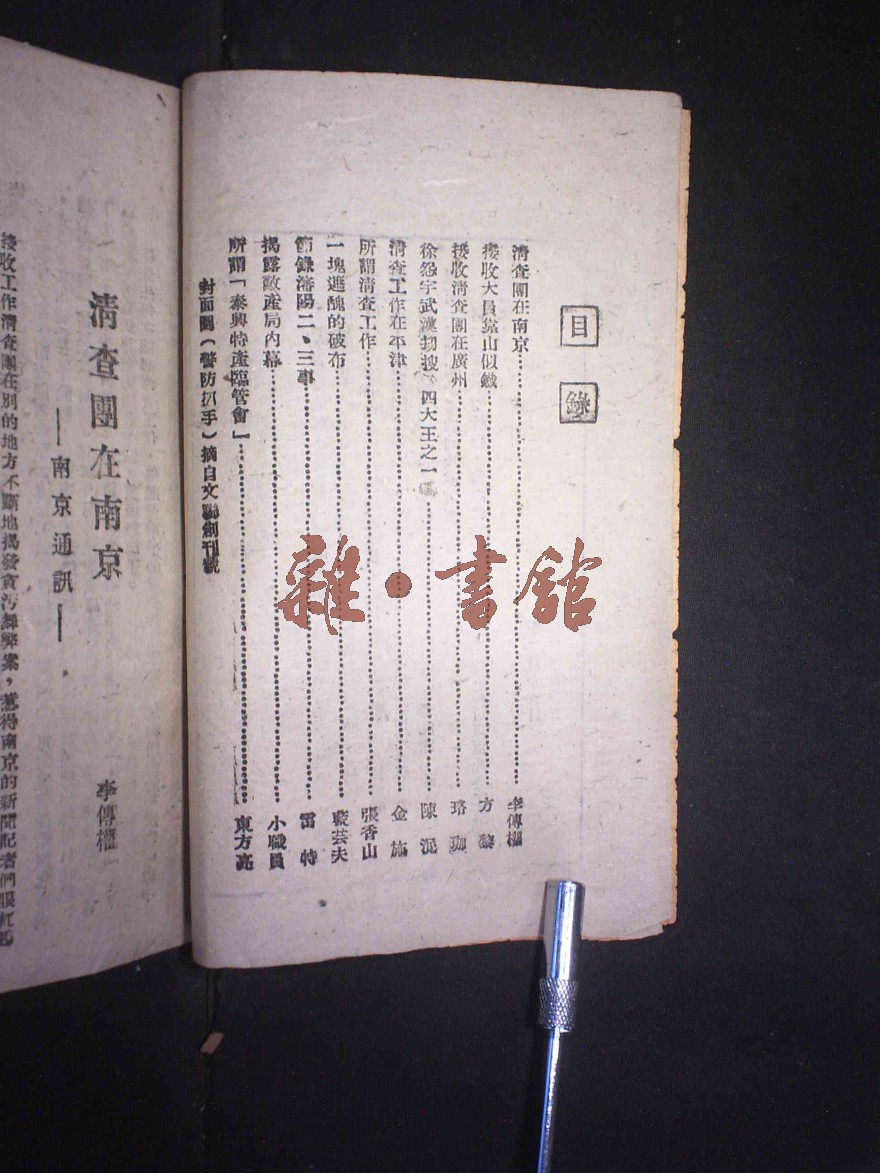 目錄
清查團在南京 李傳櫂
接收大員靠山似鐵 方黎
接收清查團在廣州 珞珈
徐怨宇武漢刼搜 四大王之一 陳泥
清查工作在平津 金施
所謂清查工作 張香山
一塊遮醜的破布 藍芸夫
節錄瀋陽二、三事 雷特
揭露敵產局內幕 小職員
所謂「泰興特產臨管會」 東方亮
封面圖(警防扒手)摘自文聯創刊號
清查團在南京
——南京通訊——
李傳櫂
接收工作清查團在別的地方不斷地揭發貪污舞弊案,惹得南京的新聞記者們眼紅起
雜·書館